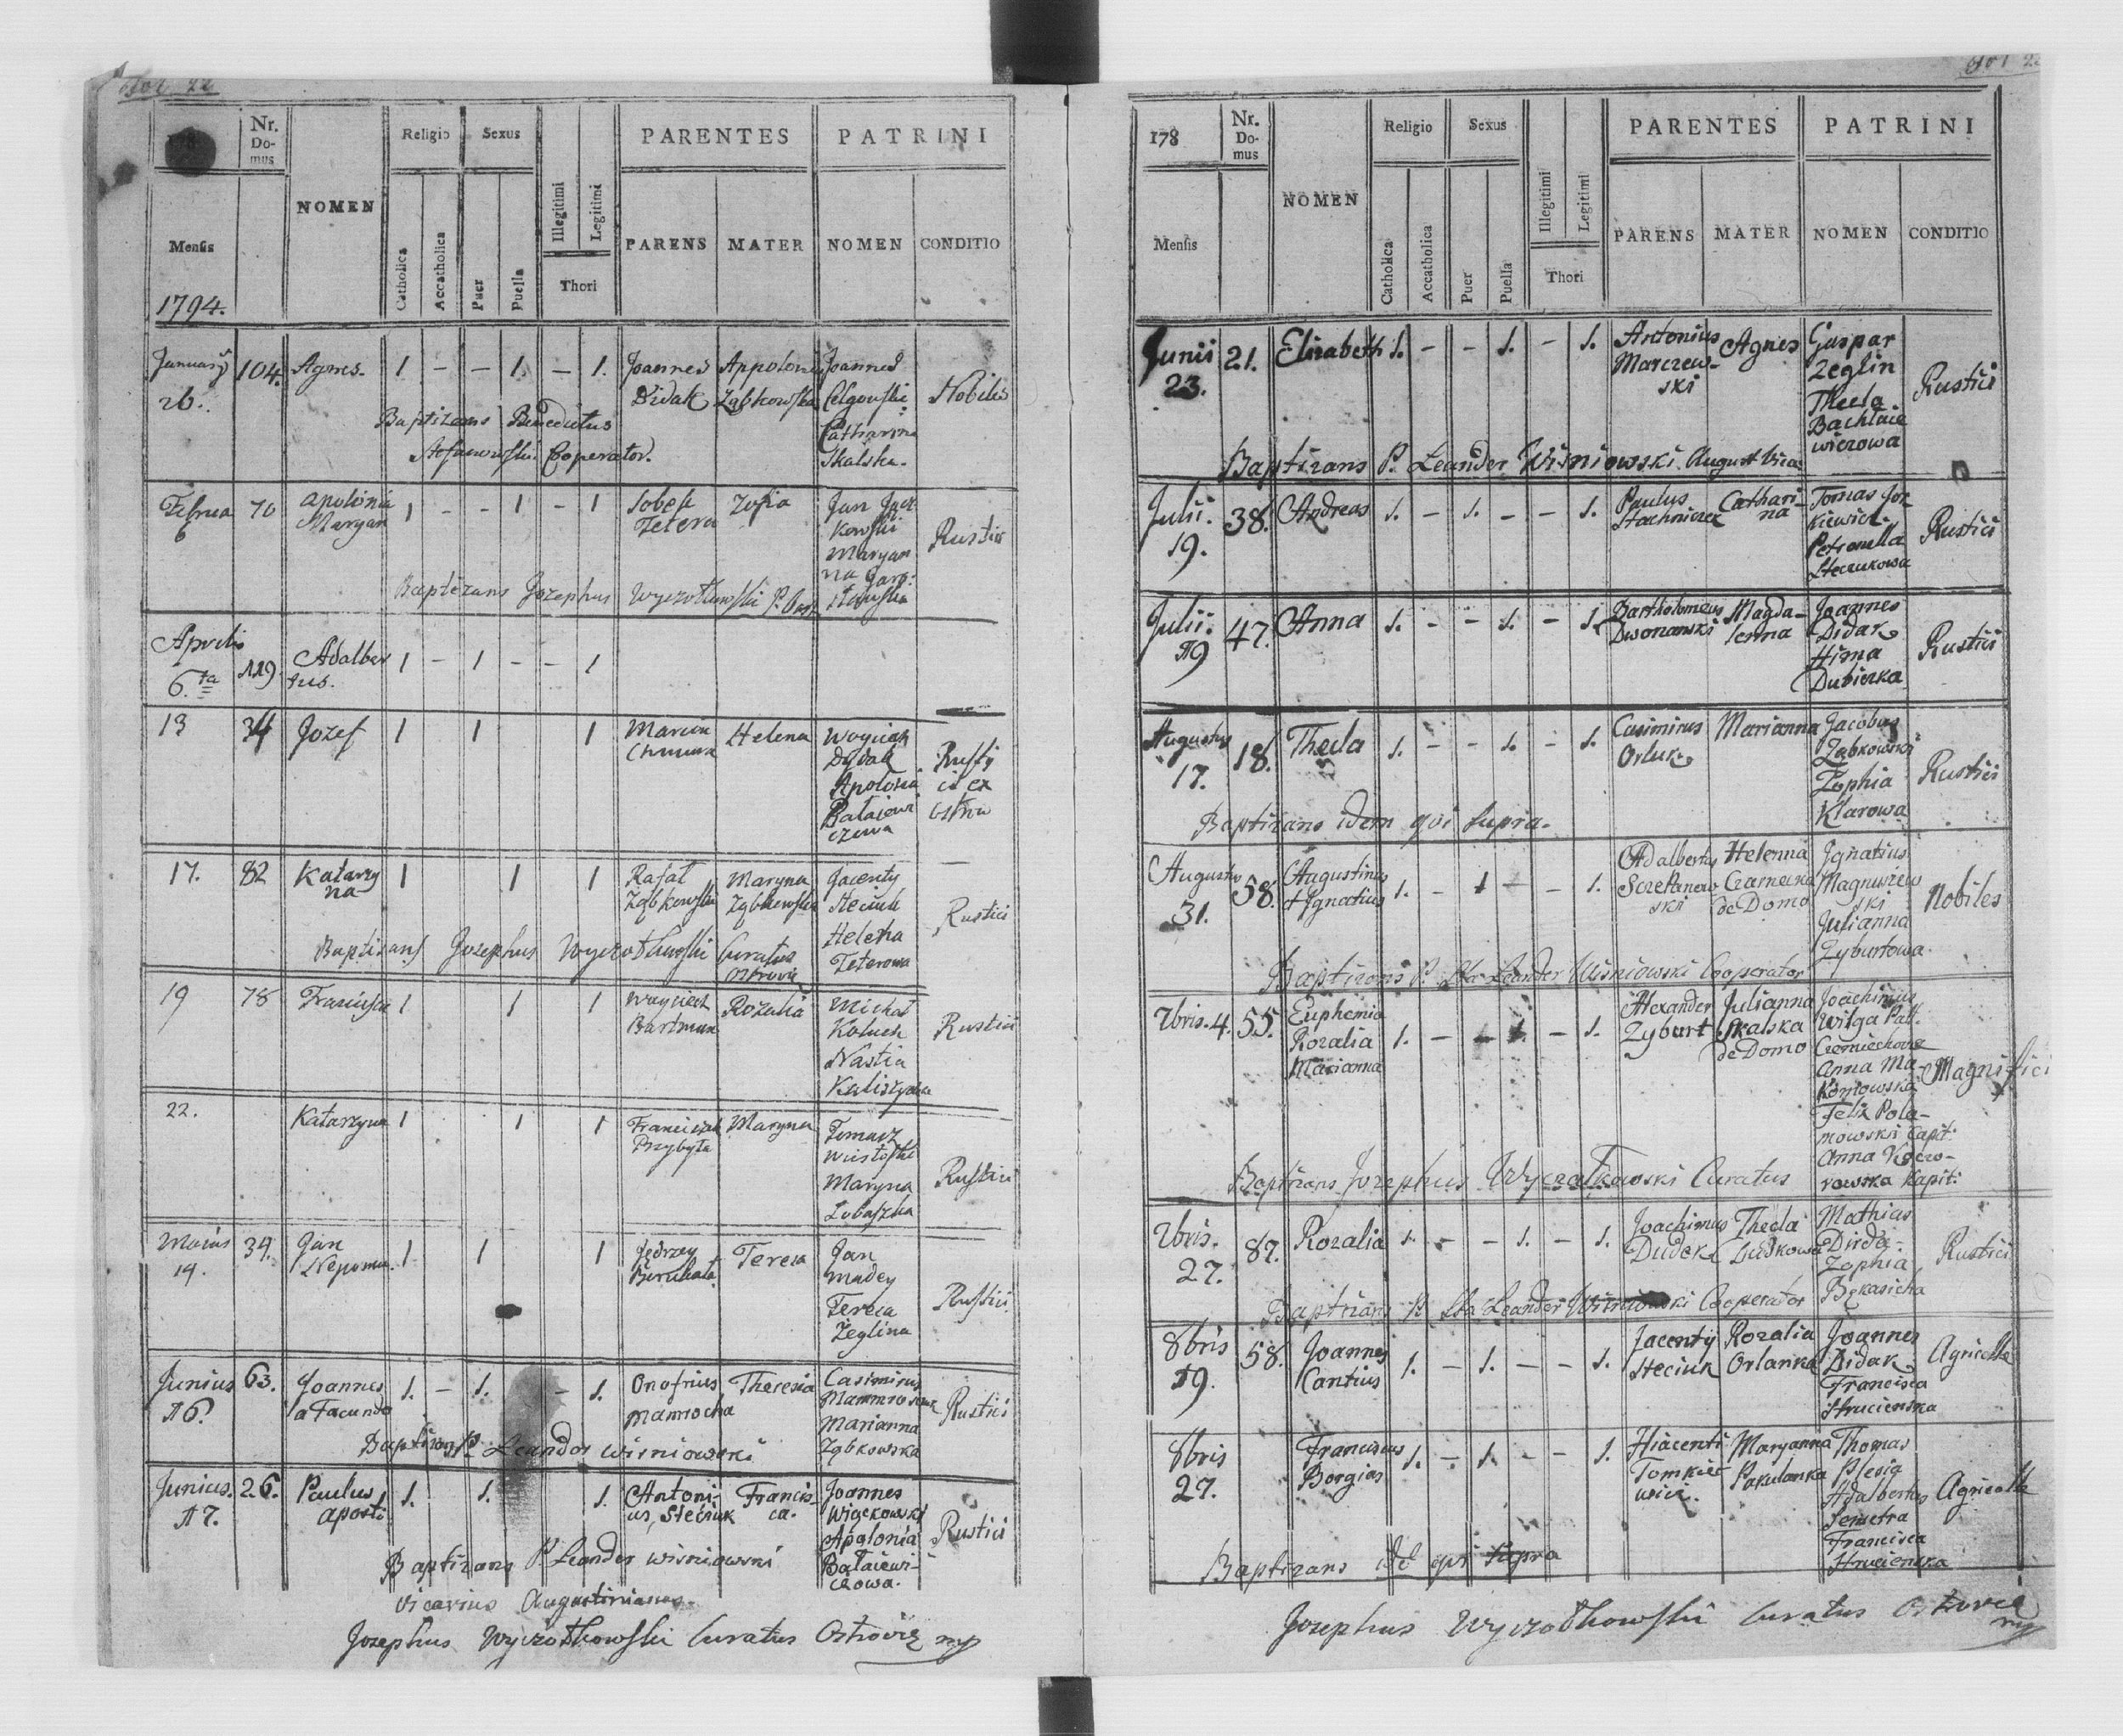 Fol 22
Nr. Domus
NOMEN
Religio
Sexus
PARENTES
PATRINI
Mensis
Catholica
Accatholica
Puer
Puella
Illegitimi
Legitimi
Thori
PARENS
MATER
NOMEN
CONDITIO
1794.
January 26. 104. Agnes. 1 – – 1. – 1. Joannes Didak Appolonia Ząbkowska Joannes Catharina Skalska. Nobilis
Baptizans Benedictus
Cooperator.
Februa 6 70 Apolonia Maryan 1 – – 1 – 1 Sobek Zofia Jan Maryanna Rustici
Baptizans Jozephus Wyczołkowski
Aprilis 6.ta 119 Adalbertus. 1 – 1 – – 1
13 34 Jozef 1 1 1 Marcin Helena Woyciech Dydak Apolonia Bataiewiczowa
17. 82 Katarzyna 1 1 1 Rafał Ząbkowski Maryna Ząbkowska Jacenty Steciuk Helena Teterowa Rustici
Baptizans Jozephus Wyczołkowski Curatus Ostroviæ
19 78 Franciszka 1 1 1 Woyciech Bartman Rozalia Michał Nastia Rustici
22. Katarzyna 1 1 1 Franciszek Przybyła Maryna Tomasz Maryna Rustici
Maius 19. 34. Jan Nepomu. 1 1 1 Jędrzey Teresa Jan Madey Teresa Żeglina Rustici
Junius 16. 63. Joannes a Facundo 1. – 1. – 1. Onofrius Mamrocha Theresia Casimirus Marianna Ząbkowska Rustici
Baptizans P. Leander Wisniowski
Junius. 17. 26. Paulus apost. 1. 1. 1. Antonius Steciuk Francisca. Joannes Więckowski Apolonia Bataiewiczowa. Rustici
Baptizans P. Leander Wisniowski
Vicarius Augustinianus.
Jozephus Wyczołkowski Curatus Ostroviæ mp
178
Nr. Domus
NOMEN
Religio
Sexus
PARENTES
PATRINI
Mensis
Catholica
Accatholica
Puer
Puella
Illegitimi
Legitimi
Thori
PARENS
MATER
NOMEN
CONDITIO
Junii 23. 21. Elizabeth 1. – – 1. – 1. Antonius Marczewski Agnes Gaspar Zeglin Thecla Rustici
Baptizans P. Leander Wiśniowski August. Vica:
Julii. 19. 38. Andreas 1. – 1. – – 1. Paulus Catharina Tomas Petronella Steciukowa Rustici
Julii. 19 47. Anna 1. – – 1. – 1. Bartholomeus Dwornawski Magdalenna Joannes Didak Hima Dubiczka Rustici
Augustus 17. 18. Thecla 1. – – 1. – 1. Casimirus Orluk Marianna Jacobus Ząbkowski Zophia Klarowa Rustici
Baptizans idem qvi supra.
Augustus 31. 58. Augustinus & Ignatius 1. – 1 – – 1. Adalbertus Szczepanowski Helenna Czarnecka de Domo Ignatius Magnuszewski Julianna Zyburtowa. Nobiles
Baptizans P. Leander Wisniowski Cooperator
7bris. 4. 55. Euphemia Rozalia Marianna 1. – – 1. – 1. Alexander Zyburt Julianna Skalska de Domo Joachimus Wilga Anna Makomowska Felix Polanowski Capit: Anna Kapit: Magnifici
Baptizans Jozephus Wyczołkowski Curatus
7bris. 27. 87. Rozalia 1. – – 1. – 1. Joachimus Dudek Thecla Mathias Dirda. Zophia Bękasicha Rustici
Baptizans P. Leander Wisniowski Cooperator
8bris 19. 58. Joannes Cantius 1. – 1. – – 1. Jacentij Steciuk Rozalia Orlanka Joannes Didak Francisca Strucienska Agricolæ
8bris 27. Franciscus Borgias 1. – 1. – – 1. Hiacenti Tomkiewicz. Maryanna Pakulanka Thomas Plesia Adalbertus Francisca Strucienska Agricolæ
Baptizans id qvi supra
Jozephus Wyczołkowski Curatus Ostroviæ mp